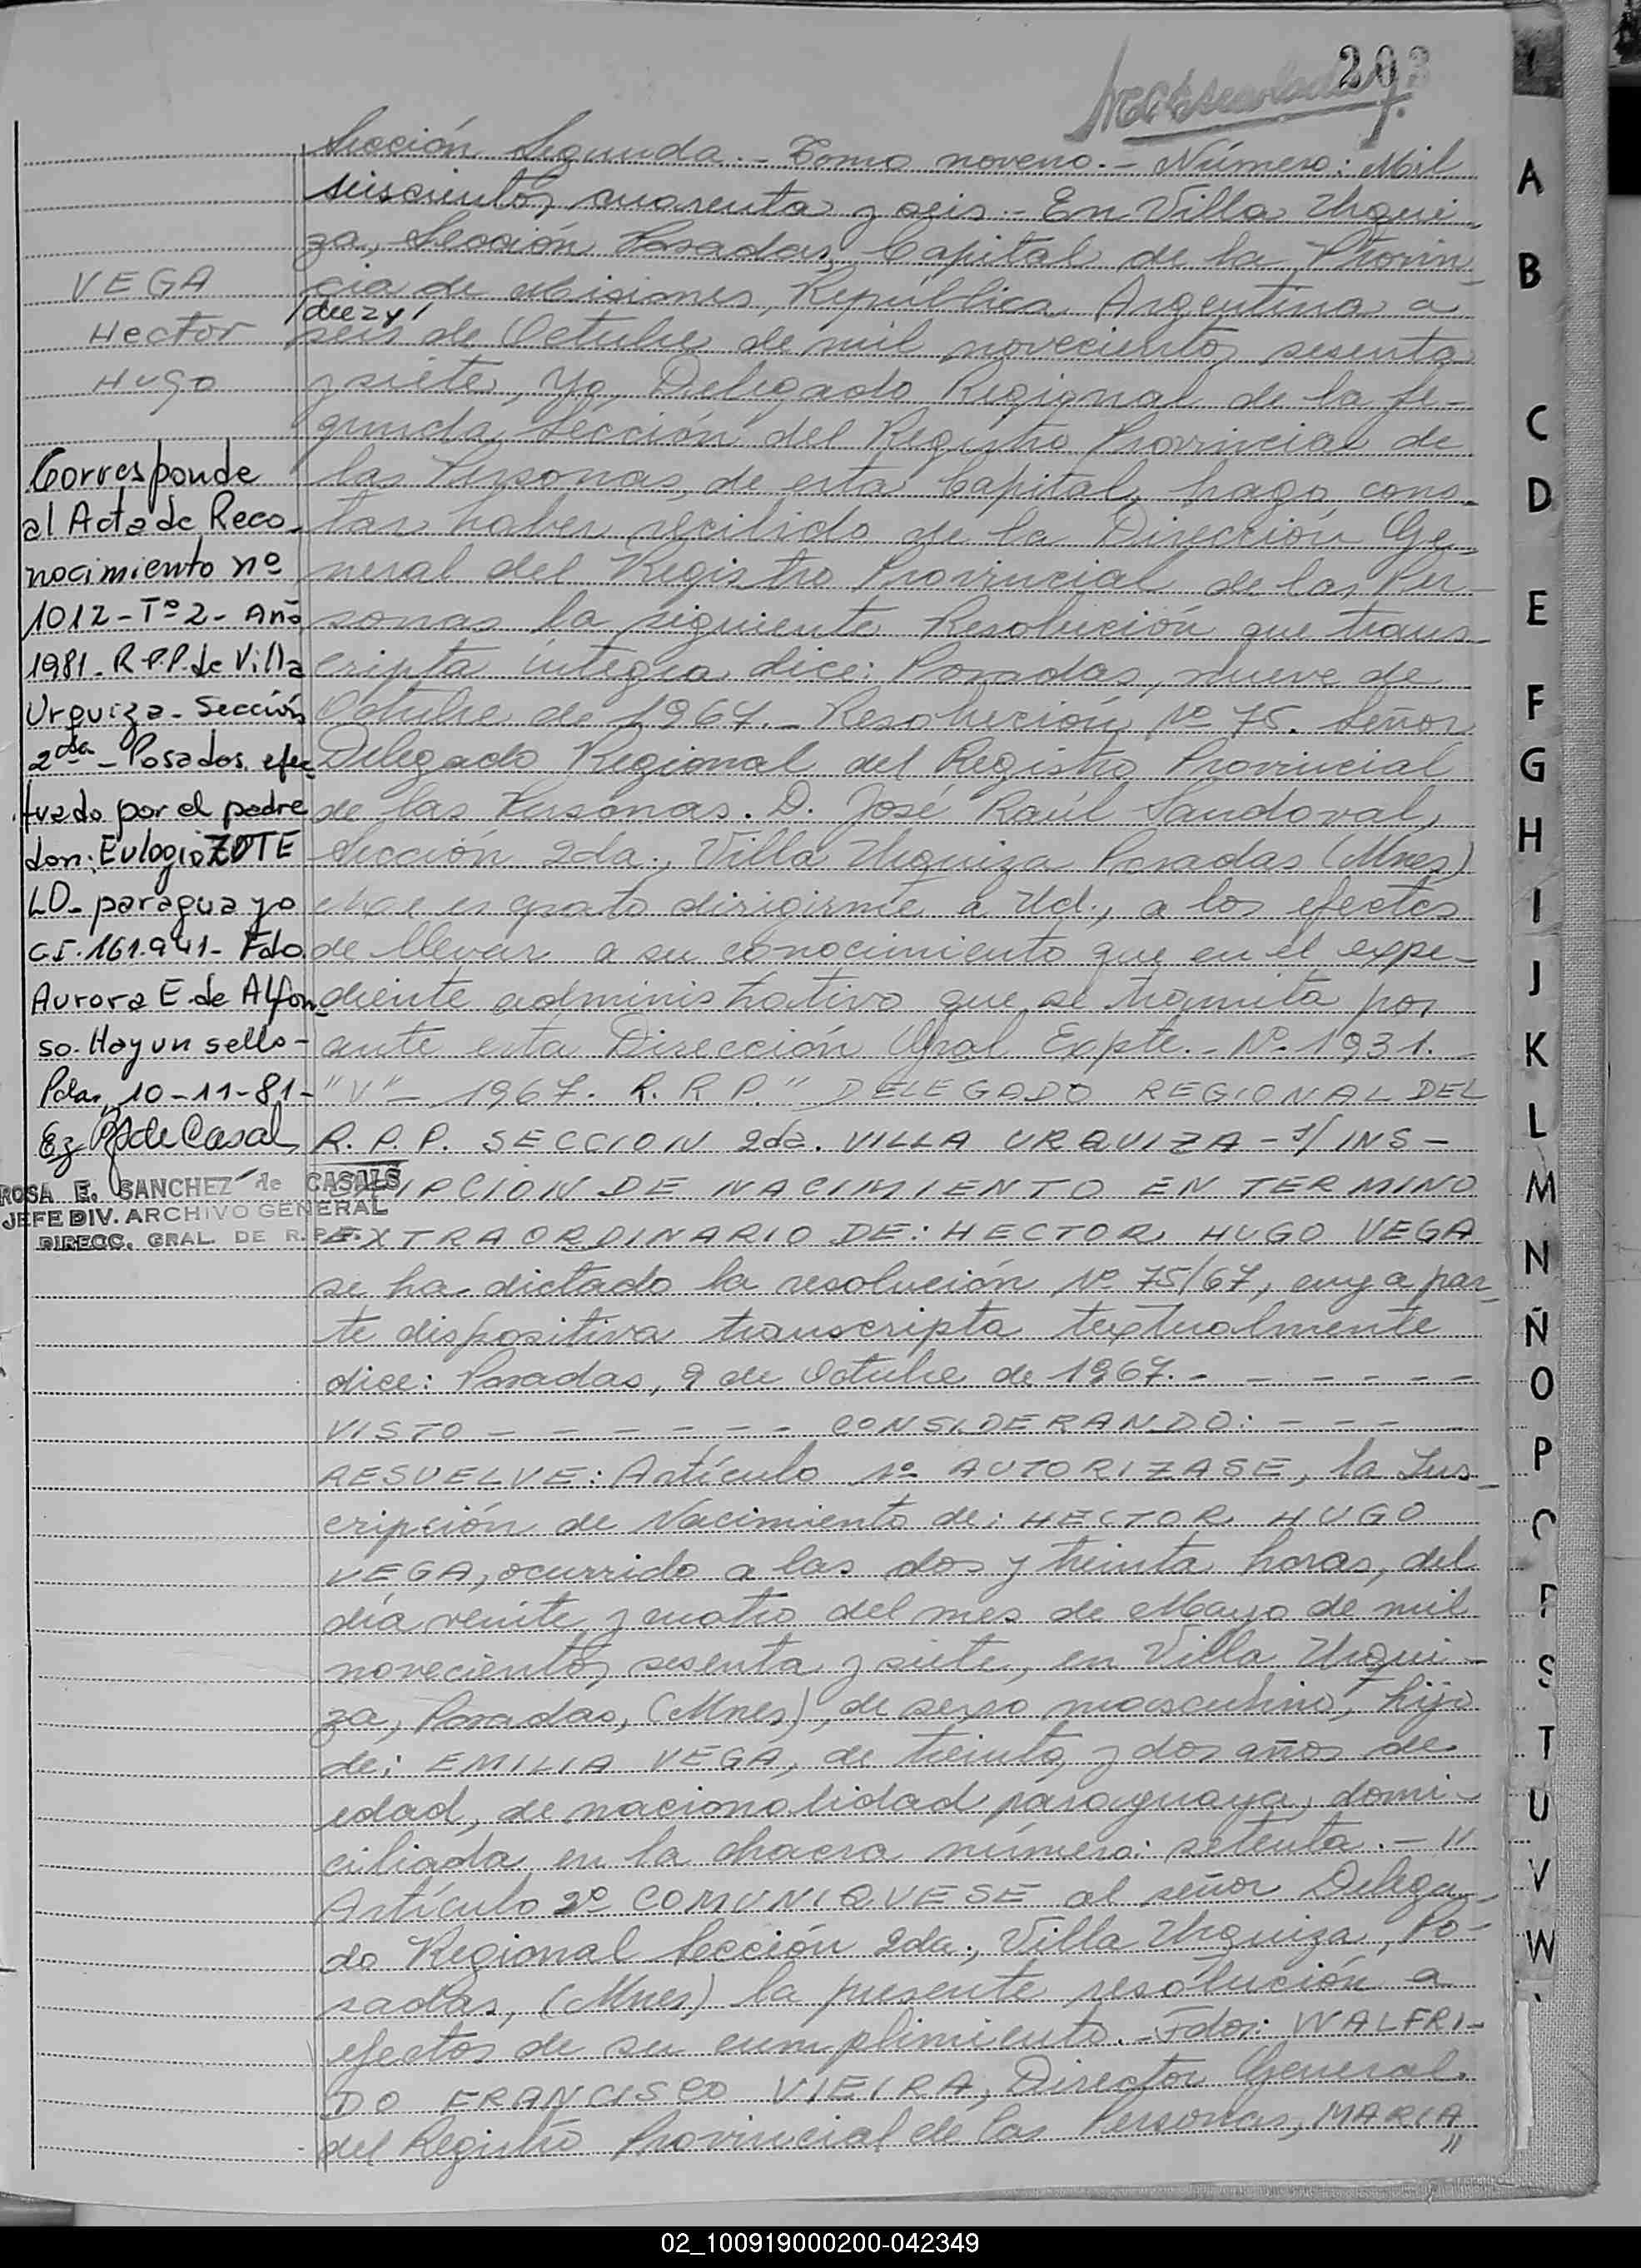 203
Sección Segunda.- Tomo noveno.- Número: Mil
seiscientos cuarenta y seis.- En Villa Urqui-
za, Sección Posadas, Capital de la Provin-
cia de Misiones, República Argentina a
/diez y/
seis de Octubre de mil novecientos sesenta
y siete, Yo, Delegado Regional de la Se-
gunda Sección del Registro Provincial de
las Personas, de esta Capital, hago cons-
tar haber recibido de la Dirección Ge-
neral del Registro Provincial de las Per-
sonas la siguiente Resolución que trans-
cripta íntegra dice: Posadas, nueve de
Octubre de 1967.- Resolución Nº 75. Señor
Delegado Regional del Registro Provincial
de las Personas. D. José Raúl Sandoval,
Sección 2da., Villa Urquiza Posadas (Mnes)
Me es grato dirigirme a Ud., a los efectos
de llevar a su conocimiento que en el expe-
diente administrativo que se tramita por
ante esta Dirección Gral Expte.- Nº 1931.
"V"- 1967. R. R. P." DELEGADO REGIONAL DEL
R. P. P. SECCION 2da. VILLA URQUIZA - s/ INS-
CRIPCION DE NACIMIENTO EN TERMINO
EXTRAORDINARIO DE: HECTOR HUGO VEGA
se ha dictado la resolución Nº 75/67, cuya par-
te dispositiva transcripta textualmente
dice: Posadas, 9 de Octubre de 1967.- - - - - - -
VISTO - - - - - - CONSIDERANDO: - - - -
RESUELVE: Artículo 1º AUTORIZASE, la Ins-
cripción de Nacimiento de: HECTOR HUGO
VEGA, ocurrido a las dos y treinta horas, del
día veinte y cuatro del mes de Mayo de mil
novecientos sesenta y siete, en Villa Urqui-
za, Posadas, (Mnes), de sexo masculino, hijo
de: EMILIA VEGA, de treinta y dos años de
edad, de nacionalidad paraguaya, domi-
ciliada en la chacra número: setenta.- "
Artículo 2º COMUNIQUESE al señor Delega-
do Regional Sección 2da., Villa Urquiza, Po-
sadas, (Mnes) la presente resolución a
efectos de su cumplimiento.- Fdo: WALFRI-
DO FRANCISCO VIEIRA, Director General
del Registro Provincial de las Personas, MARIA
"
VEGA
Hector
Hugo
Corresponde
al Acta de Reco-
nocimiento nº
1012-Tº2- Año
1981- R.P.P. de Villa
Urquiza- Sección
2da - Posadas. efec
tuado por el padre
don: Eulogio ZOTE
LO- paraguayo
C.I. 161.941- Fdo.
Aurora E. de Alfon-
so. Hay un sello-
Pdas, 10-11-81-
de Casal
ROSA E. SANCHEZ de CASALS
JEFE DIV. ARCHIVO GENERAL
DIRECC. GRAL. DE R.P.P.
A
B
C
D
E
F
G
H
I
J
K
L
M
N
Ñ
O
P
Q
R
S
T
U
V
W
02_100919000200-042349